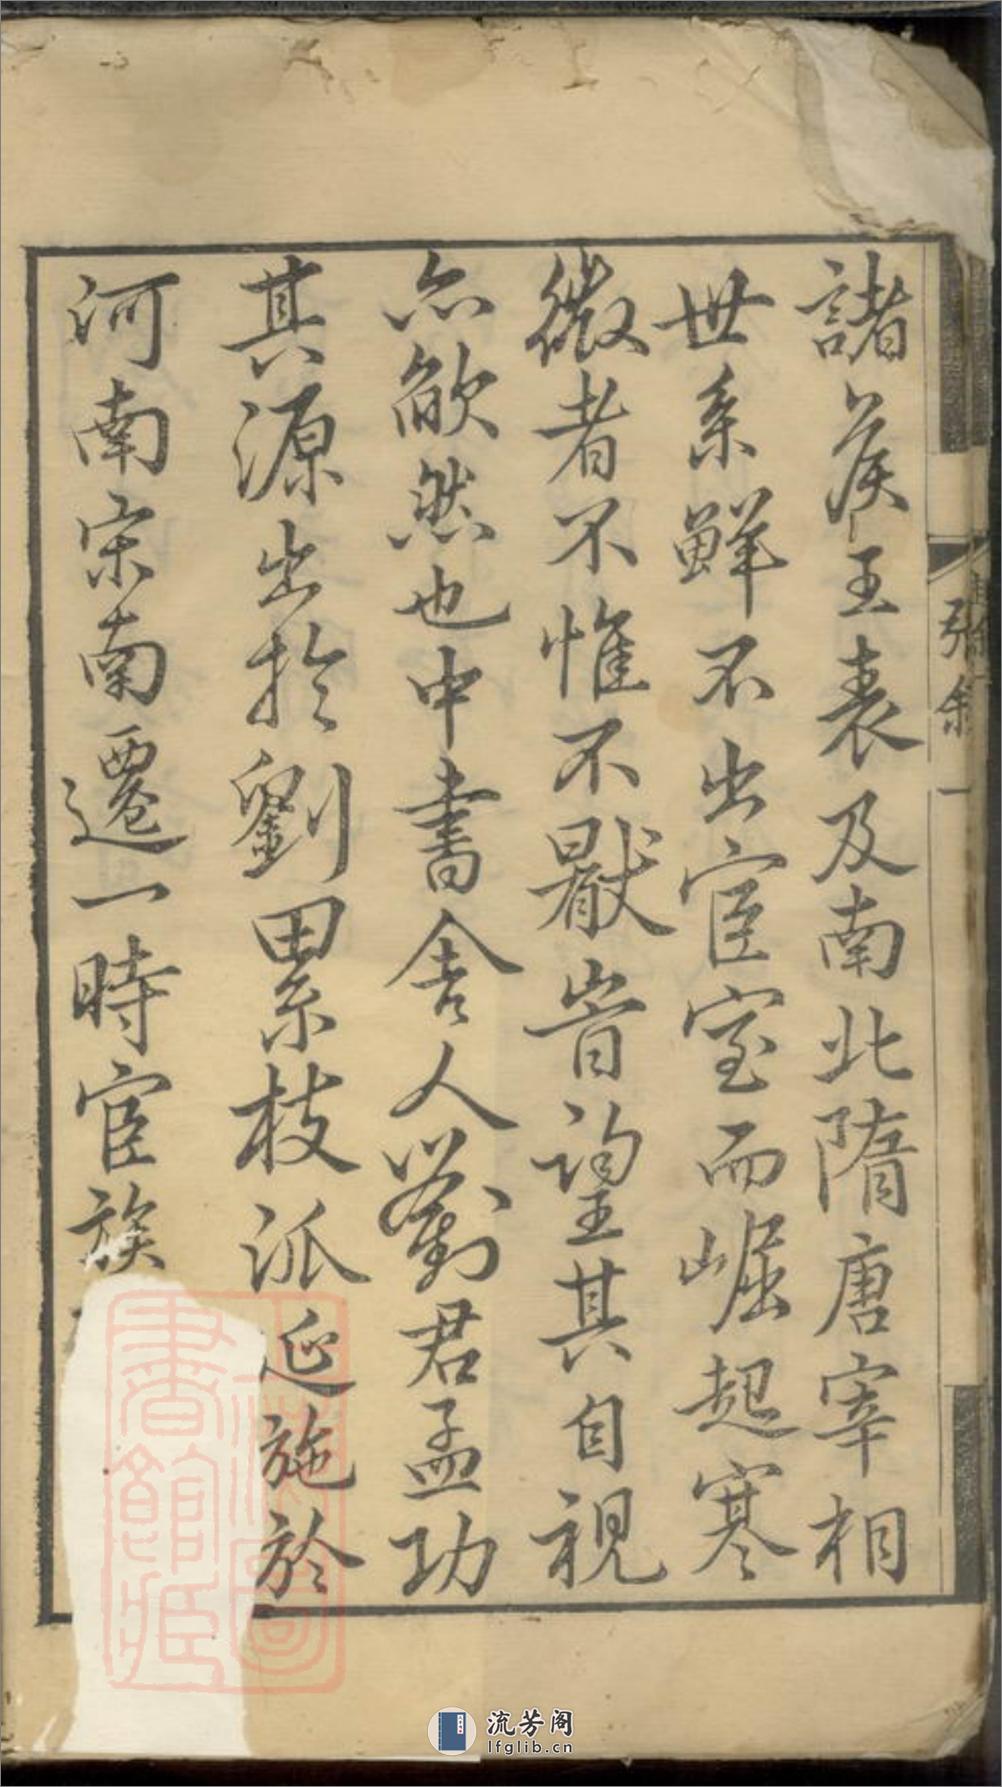 諸侯王表及南北隋唐宰相
世系鮮不出宦室而崛起寒
微者不惟不厭時望其自視
亦歉然也中書舍人劉君孟功
其源出於劉累枝派延施於
河南宋南遷一時宦族
張
一
書館
流芳阁
lfglib.cn